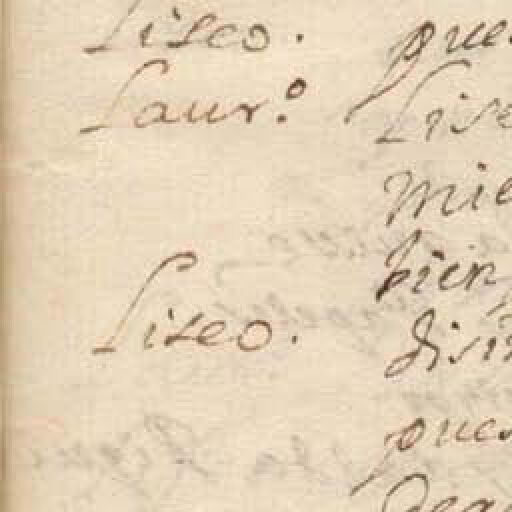 Liseo. pue
Laur.º Lise
mie
bien
disi
pues